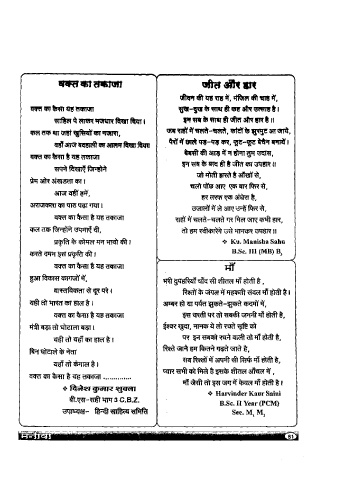 वक्त का तकाजा
वक्त का कैसा यह तकाजा
साहिल पे लाकर मजधार दिखा दिया।
कल तक था जहां खुशियों का नजारा,
वहाँ आज बदहाली का आलम दिखा दिया।
वक्त का कैसा है यह तकाजा
सपने दिखाएँ जिन्होंने
प्रेम और अंखडता का।
आज वहीं हमें,
अराजकता का पाठ पढ़ा गया।
वक्त का कैसा है यह तकाजा
कल तक जिन्होंने उपमाएँ दी,
प्रकृति के कोमल मन भावो की।
करते दमन इस प्रकृति की।
वक्त का कैसा है यह तकाजा
हुआ विकास कागजों में,
वास्तविकता से दूर परे।
यही तो भारत का हाल है।
वक्त का कैसा है यह तकाजा
मंत्री बड़ा तो घोटाला बड़ा।
यही तो यहाँ का हाल है।
बिन घोटाले के नेता
यहाँ तो कंगाल है।
वक्त का कैसा है यह तकाजा ..............
❖ दिनेश कुमार शुक्ला
बी.एस-सही भाग 3 C.B.Z.
उपाध्यक्ष- हिन्दी साहित्य समिति
जीत और हार
जीवन की यह राह में, मंजिल की चाह में,
सुख-दुख के साथ ही छह और उत्साह है।
इन सब के साथ ही जीत और हार है॥
जब राहों में चलते-चलते, कांटों के झुरमुट आ जाये,
पैरों में छाले पड़-पड़ कर, फूट-फूट बेचैन बनायें।
बेबसी की आड़ में न होना तुम उदास,
इन सब के बाद ही है जीत का उपहार॥
जो मोती झरते है आँखों से,
चलो पोंछ आए एक बार फिर से,
हर तरफ एक अंधेरा है,
उजालों में ले आए उन्हें फिर से,
राहों में चलते-चलते गर मिल जाए कभी हार,
तो हम स्वीकारेंगे उसे मानकर उपहार॥
❖ Ku. Manisha Sahu
B.Sc. III (MB) B₂
माँ
भरी दुपहरियाँ चाँद सी शीतल माँ होती है,
रिश्तों के जंगल में महकती संदल माँ होती है।
अम्बर हो या पर्वत झुकते-झुकते कदमों में,
इस धरती पर तो सबकी जननी माँ होती है,
ईश्वर खुदा, मानक ये तो रचते सृष्टि को
पर इन सबको रचने वाली तो माँ होती है,
रिश्ते जाने हम कितने गढ़ते जाते है,
सब रिश्तों में अपनी सी सिर्फ माँ होती है,
प्यार सभी को मिले है इसके शीतल आँचल में,
माँ जैसी तो इस जग में केवल माँ होती है।
❖ Harvinder Kaur Saini
B.Sc. II Year (PCM)
Sec. M₁ M₂
51